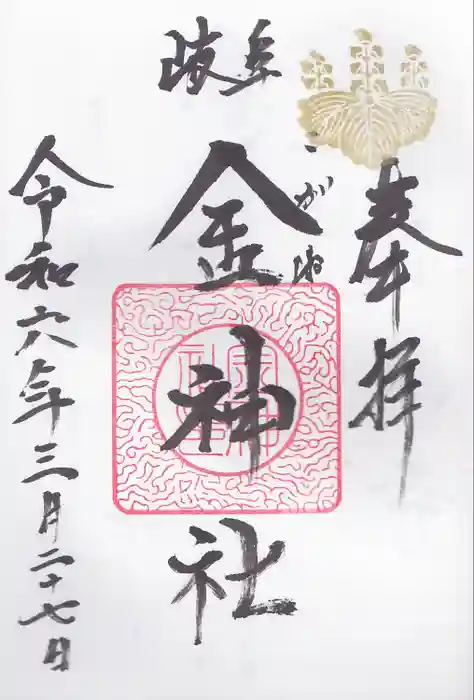 奉拝
岐阜
こがね
金神社
令和六年三月二十七日